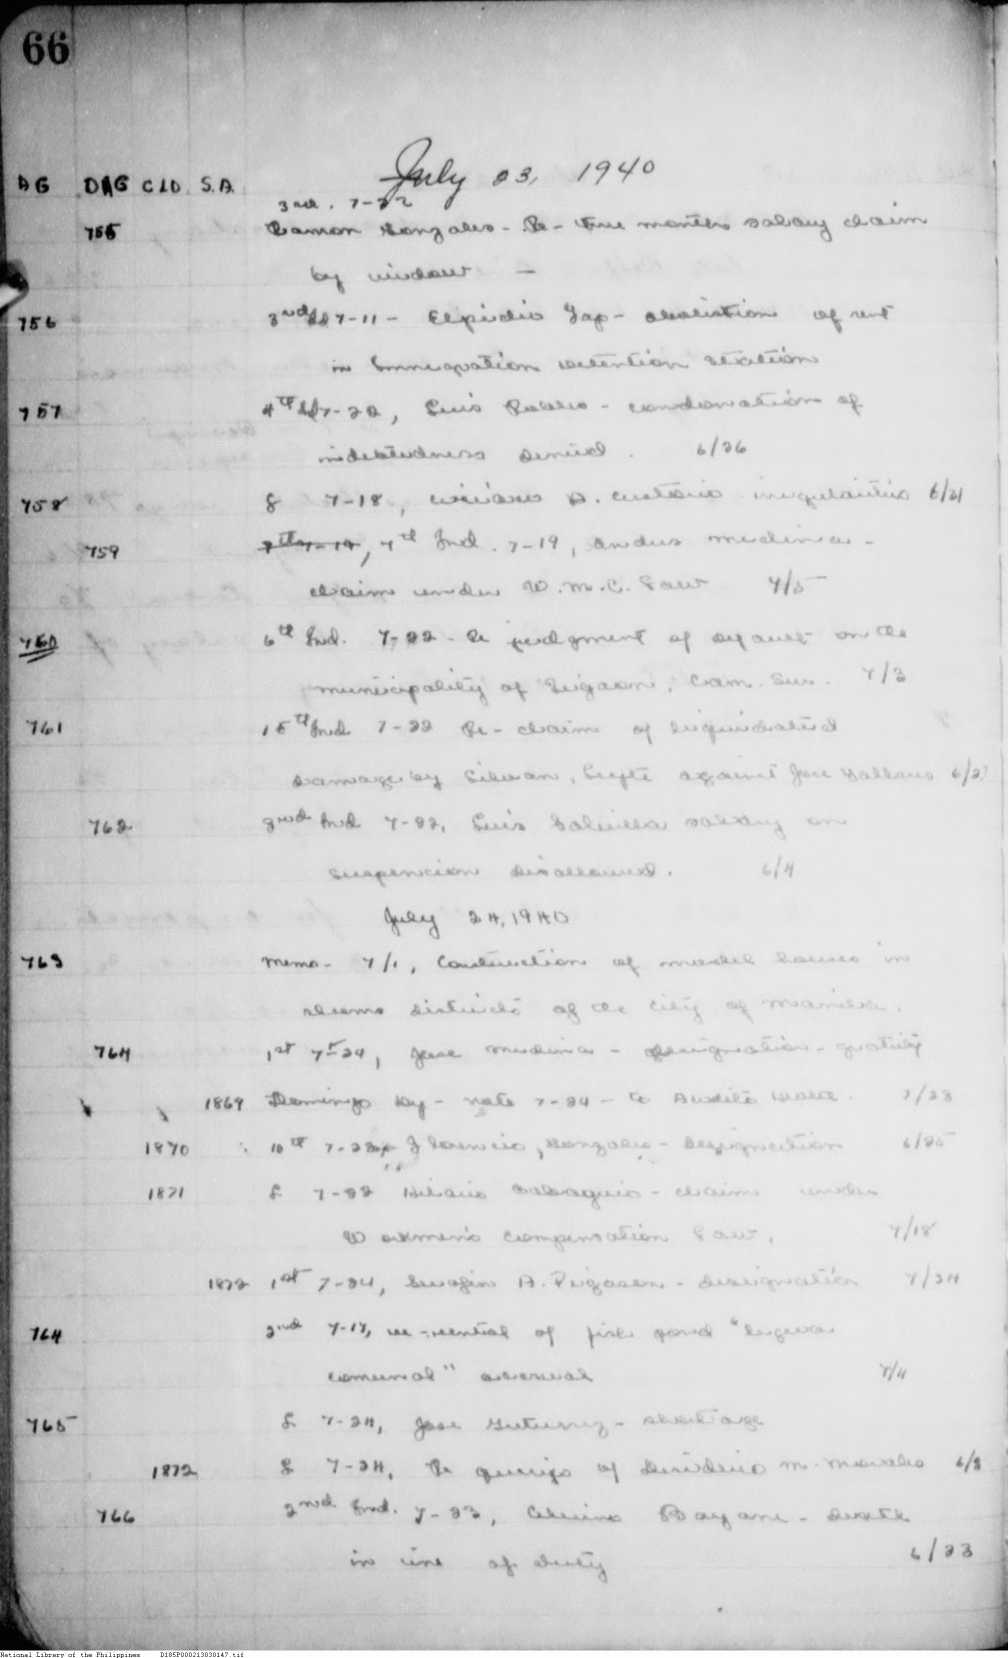 66
July 23, 1940
AG DAG CID S.A.
3rd. 7-22
755 Ramon Gonzales - Re - five months salary claim
by widow -
756 3rd Ind 7-11 - Elpidio Yap - abolition of rent
in Immigration Detention Station
757 4th Ind 7-22, Luis Pablo - condonation of
indebtedness denied. 6/26
758 L 7-18, A. Custodio irregularities 6/21
759 7th Ind. 7-19, Andres Medina -
claim under W.M.C. Law 7/5
760 6th Ind. 7-22 - Re judgment of default on the
municipality of Sigaon, Cam. Sur. 7/3
761 15th Ind 7-22 Re - claim of liquidated
damage by Leyte against Jose
762 3rd Ind 7-22, Luis salary on
suspension disallowed. 6/4
July 24, 1940
763 Memo - 7/1, Construction of model houses in
slums districts of the City of Manila.
764 1st 7-24, Jose Medina - - gratuity
1869 Domingo Uy - note 7-24 - to 7/23
1870 10th 7-23 Florencio Gonzales - designation 6/25
1871 L 7-22 Hilario - claim under
Workmen's Compensation Law, 7/18
1872 1st 7-24, A. - designation 7/24
764 2nd 7-17, re - rental of fish pond "
comunal" 7/4
765 L 7-24, Jose Gutierrez - shortage
1872 L 7-24, Re of M. Morales 6/8
766 2nd Ind. 7-23, Bayani - death
in line of duty 6/23
National Library of the Philippines D185P000213030147.tif